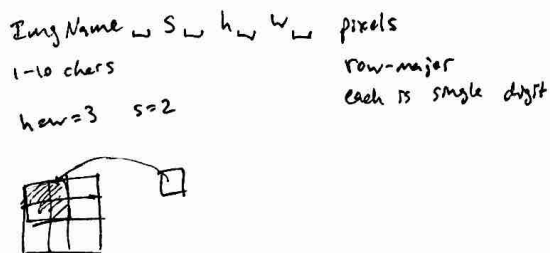 ImgName ␣ S ␣ h ␣ w ␣ pixels
1-10 chars
row-major
each is single digit
h=w=3 s=2